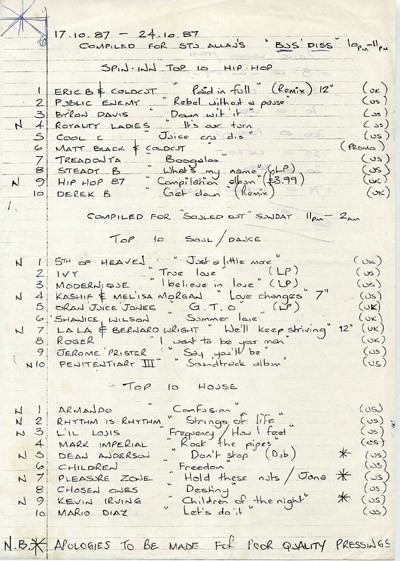 17.10.87 – 24.10.87
COMPILED FOR STU ALLAN'S "BUS DISS" 10pm–11pm
SPIN-INN TOP 10 HIP-HOP
1 ERIC B & COLDCUT "Paid in full" (Remix) 12" (UK)
2 PUBLIC ENEMY "Rebel without a pause" (US)
3 BYRON DAVIS "Down wit it" (US)
N 4 ROYALTY LADIES "It's our turn" (US)
5 COOL C "Juice crew dis" (US)
6 MATT BLACK & COLDCUT (PROMO)
7 TREADONYA "Boogaloo" (US)
8 STEADY B "What's my name" (LP) (US)
N 9 HIP HOP 87 "Compilation album" (£3.99) (UK)
10 DEREK B "Get down" (Remix) (UK)
COMPILED FOR "SOULED OUT" SUNDAY 11pm – 2am
TOP 10 SOUL/DANCE
N 1 5TH OF HEAVEN "Just a little more" (UK)
2 IVY "True love" (LP) (US)
3 MODERNIQUE "I believe in love" (LP) (US)
N 4 KASHIF & MELISA MORGAN "Love changes" 7" (US)
5 ORAN JUICE JONES "G.T.O" (LP) (UK)
6 SHANICE WILSON "Summer love" (UK)
N 7 LALA & BERNARD WRIGHT "We'll keep striving" 12" (UK)
8 ROGER "I want to be your man" (UK)
9 JEROME PRISTER "Say you'll be" (US)
N 10 PENITENTIARY III "Soundtrack album" (US)
TOP 10 HOUSE
N 1 ARMANDO "Confusion" (US)
N 2 RHYTHM IS RHYTHM "Strings of life" (US)
N 3 L'IL LOUIS "Frequency / How I feel" (US)
4 MARK IMPERIAL "Rock the pipes" (US)
N 5 DEAN ANDERSON "Don't stop" (Dub) * (US)
6 CHILDREN "Freedom" (US)
N 7 PLEASURE ZONE "Hold these nuts / Jane * (US)
8 CHOSEN ONES "Destiny" (US)
N 9 KEVIN IRVING "Children of the night" * (US)
10 MARIO DIAZ "Let's do it" (US)
N.B.* APOLOGIES TO BE MADE FOR POOR QUALITY PRESSINGS